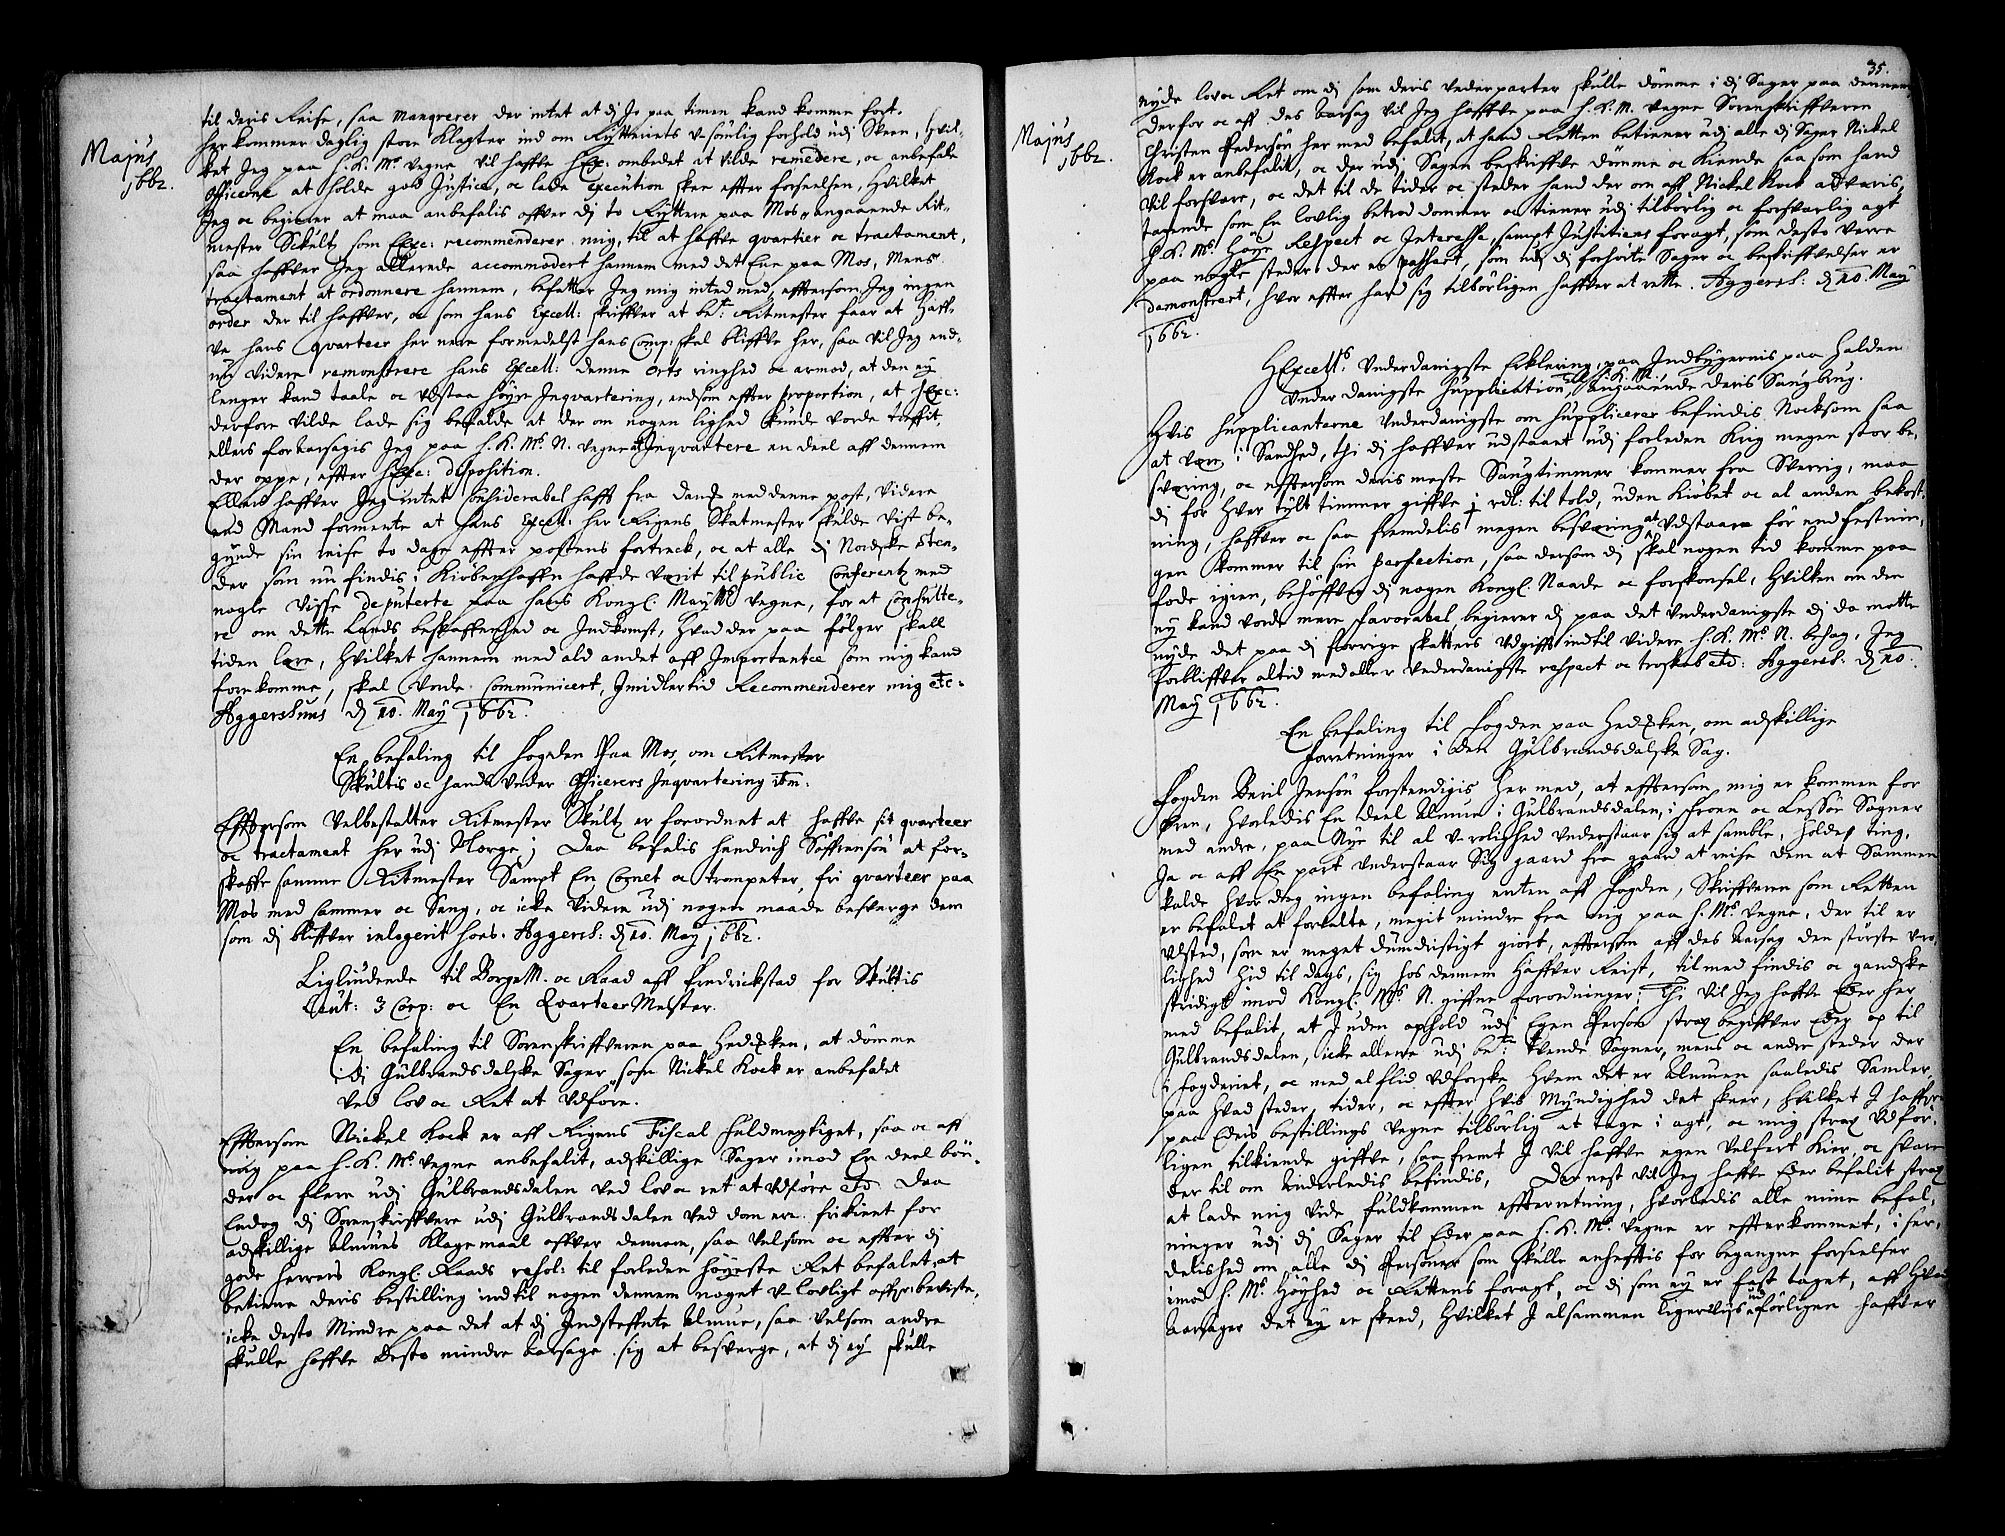 Majus
1662.
til deris Reise, saa manqverer der intet at di Jo paa timen kand komme fort.
her kommer daglig store Klagter ind om Rytteriets u-sømlig forhold udj Skeen, hvil-
ket Jeg paa H. K. Ms. Vegne vil haffve HExc: ombedet at vilde remedere, oc anbefale
Officerne at holde god Justice, oc lade Execution skee effter forseelsen, hvilket
Jeg oc begierer at maa anbefalis offver dj to Ryttere paa Mos, angaaende Rit-
mester Schultz som Exc: recommenderer mig, til at haffve qvarteer oc tractament,
saa haffver Jeg allerede accommodert hannem med det Ene paa Mos, Mens
tractament at ordonnere hannem, befatter Jeg mig inted med, effterson Jeg ingen
order der til haffver, oc som hans Excell: skriffver at be:te Ritmester faar at haff-
ve hans qvarteer her nere formedelst hans Comp: skal bliffve her, saa vil Jeg end-
nu videre remonstrere hans Excell: denne orts ringhed oc armod, at den ey
lenger kand taale oc udstaa høyre Inqvartering, endsom effter proportion, at HExc:
derfore vilde lade sig befalde at der om nogen lighed kunde vorde treffit,
ellers foraarsagis Jeg paa H. K. Ms. N. Vegne at Inqvartere en deel aff dennem
der oppe, effter HExc: disposition.
Ellers haffver Jeg intet Considerabel hafft fra Danz med denne post, videre
end Mand formente at hans Excell: her Rigens Skatmester skulde vist be-
gynde sin reise to dage effter postens fortreck, oc at alle dj Nordske Sten-
der som nu findis i Kiøbenhaffn haffde verit til public Conferentz med
nogle visse deputerte paa hans Kongl: Maytts Vegne, for at Consulte-
re om dette Lands beskaffenhed oc Indkomst, hvad der paa følger skall
tiden lære, hvilket hannem med ald andet aff Importantee som mig kand
forekomme, skal vorde Communicert, Imidlertid Recommenderer mig etc.
Aggershuus dj 10. Maij 1662.
En befaling til Fogden Paa Mos, om Ritmester
Skultis oc hans under Officerers Inqvartering item.
Efftersom Velbestalter Ritmester Skultz er forordnet at haffve sit qvarteer
oc tractament her udj Norge; Daa befalis Hendrich Søffrensøn at for-
skaffe samme Ritmester Sampt En Cornet oc trompeter, fri qvarteer paa
Mos med Cammer oc Seng, oc icke videre udj nogen maade besverge dem
som dj bliffver inlogerit hos. Aggersh: dj 10. Maij 1662.
Liglindende til BorgeM. oc Raad aff Fredrickstad for Skultis
Leut: 3 Corp: oc En QvarteerMester.
En befaling til Sorenskriffveren paa Hedsken, at dømme
i dj Gulbrandsdalske Sager som Nickel Kock er anbefalet
ved lov oc Ret at Udføre.
Efftersom Nickel Kock er aff Rigens Fiscal fuldmegtiget, saa oc aff
mig paa H. K. Ms. Vegne anbefalit, adskillige Sager imod En deel bøn-
der oc flere udj Gulbrandsdalen ved lov oc ret at Udføre etc. Daa
endog dj Sorenskriffvere udj Gulbrandsdalen ved dom ere frikient for
adskillige Almues Klagemaal offver dennem, saa velsom oc effter dj
gode herrers Kongl: Raads resol: til forleden høyeste Ret befalet, at
betiene deris bestilling indtil nogen dennem noget u-lovligt offverbeviste,
icke desto Mindre paa det at dj Indsteffnte Almue, saa velsom andre
skulle haffve desto mindre Aarsage sig at besverge, at dj ey skulle
35.
Majus
1662.
nyde lov oc Ret om dj som deris vederparter skulle dømme i dj Sager paa dennem,
derfor oc aff des Aarsag vil Jeg haffve paa H. K. M. Vegne Sorenskriffveren
Christen Pedersøn her med befalet, at hand Retten betiener udj alle dj Sager Nickel
Kock er anbefalit, oc der udj Sagen beskriffve dømme oc kiende saa som hand
vil forsvare, oc det til de tider oc steder hand der om aff Nickel Kock advaris,
tagende som En lovlig betrod dommer oc tiener udj tilbørlig oc forsvarlig agt
H. K. Ms. Høye Respect oc Interesse, sampt Justitiens foragt, som desto verre
paa nogle steder der er passert, som udj dj forhørte Sager oc beskriffvelser er
demonstrert, hvor effter hand sig tilbørligen haffver at rette. Aggersh: dj 10. Maij
1662.
HExcell:s Underdanigste Erklering, paa Indbyggernis paa Halden
Underdanigste Supplication til H. K. M., Angaaende deris Saugbrug.
Hvis Supplicanterne Underdanigste om Supplicerer befindis Nocksom saa
at vere i Sandhed, thi dj haffver udstaaet udj forleden Krig megen stor be-
svering, oc efftersom deris meste Saugtimmer kommer fra Sverrig, maa
dj for hver tylt timmer giffve 1 rdl: til told, uden Kiøbet oc al anden bekost-
ning, haffver oc saa fremdelis megen besvering at Udstaae før end festnin-
gen kommer til sin perfection, saa dersom dj skal nogen tid komme paa
fode igien, behøffver dj nogen Kongl: Naade oc forskonsel, hvilken om den
ey kand vorde mere favorabel, begierer dj paa det Underdanigste dj da motte
nyde det paa dj forrige skatters Udgifft indtil videre H. K. Ms. N. behag, Jeg
forbliffver altid med aller Underdanigste respect oc troskab etc: Aggersh: dj 10.
Maij 1662.
En befaling til Fogden paa Hedsken, om adskillige
forretninger i den Gulbrandsdalske Sag.
Fogden Beril Jensøn forstendigis her med, at efftersom mig er kommen for
ören, hvorledis En deel Almue i Gulbrandsdalen, i Froen oc Lessøe Sogner
med andre, paa Nye til al u-rolighed understaar sig at samble, holde ting,
Ja oc aff En part understaar Sig gaard fra gaard at reise dem at Sammen
kalde hvor dog ingen befaling enten aff Fogden, Skriffveren som Retten
er befalet at forvalte, megit mindre fra mig paa H. Ms. Vegne, der til er
Udsted, som er meget dumdristigt giort, effterson aff des Aarsag den største uro-
lighed hid til dags, sig hos dennem haffver Reist, tilmed findis oc gandske
stridigt imod Kongl: Ms. N. giffne forordninger; Thi vil Jeg haffve Eder her
med befalit, at I uden ophold udj Egen Person strax begiffver Eder op til
Gulbrandsdalen, icke allene udj be:te tvende Sogner, mens oc andre steder der
i fogderiet, oc med al flid Udforske hvem det er Almuen saaledis Samler,
paa hvad steder, tider, oc effter hvis Myndighed det skeer, hvilket I haffver
paa Eders bestillings Vegne tilbørlig at tage i agt, oc mig strax Udfør-
ligen tilkiende giffve, saa fremt I vil haffve egen velfert kier, oc svare
der til om Anderledis befindis, Dernest vil Jeg haffve Eder befalit strax
at lade mig vide fuldkommen effterretning, hvorledis alle mine befal-
ninger udj dj Sager til Eder paa H. K. Ms. Vegne er effterkommet, i ser-
delished om alle dj Personer som skulle anhefftis for begangne forseelser
imod H. Ms. Høyhed oc Rettens foragt, oc dj som ey er fast taget, aff hvad
aarsager det ey er skeed, hvilket I alsammen ligerviis udførligen haffver